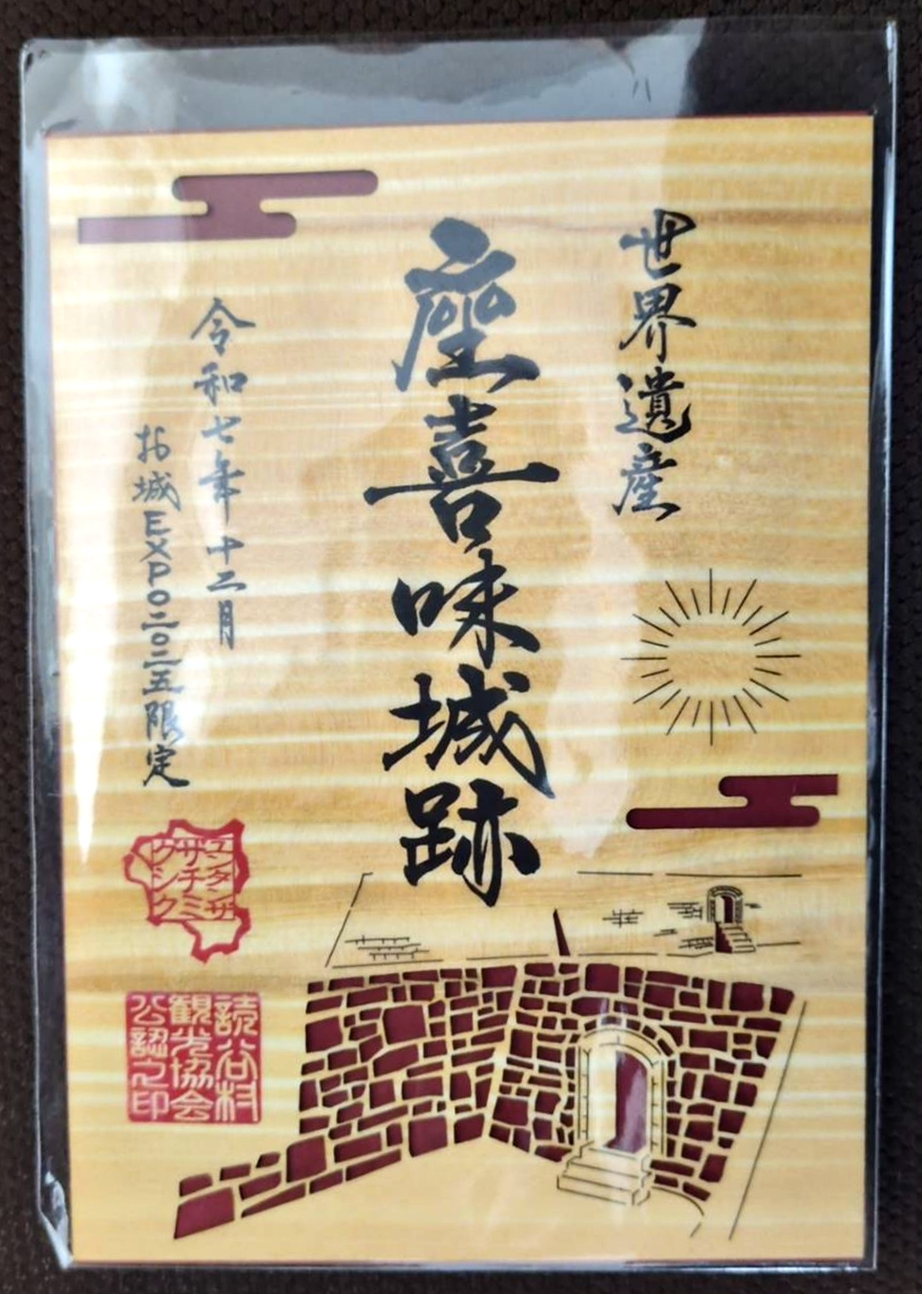 世界遺産
座喜味城跡
令和七年十二月
お城EXPO二〇二五限定
ユンタンザ
サチミ
グシク
読谷村
観光協会
公認之印